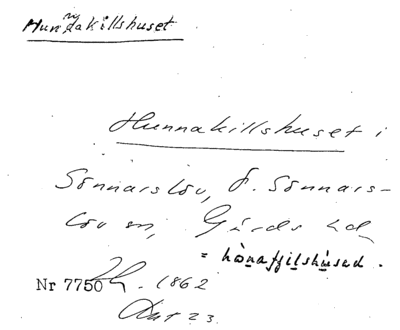 Hunnakillshuset
Hunnakillshuset i
Sönnarslöv, Ö. Sönnars-
löv sn, Gärds hd
= hònaffilshùsed.
Nr 7750 1862
23